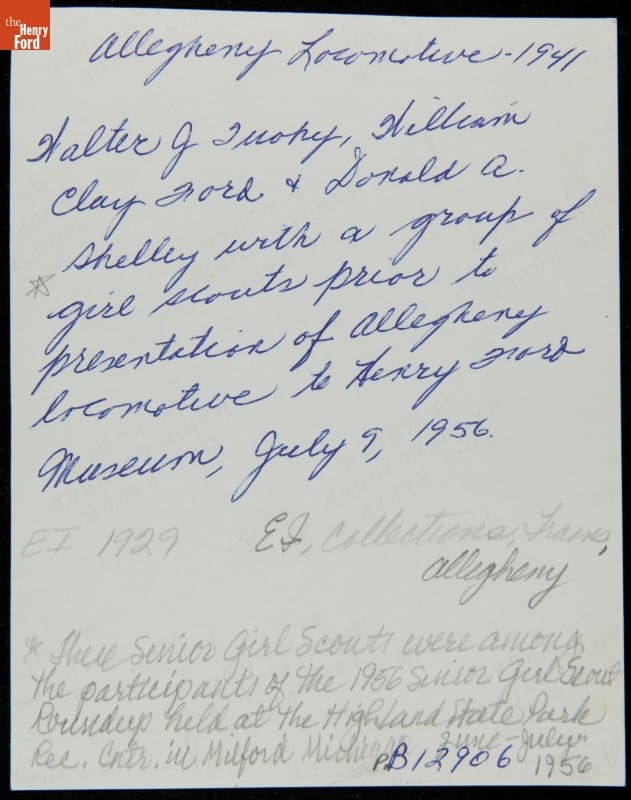 the
Henry
Ford
Allegheny Locomotive - 1941
Walter J Tuohy, William
Clay Ford & Donald A.
Shelley with a group of
* girl scouts prior to
presentation of Allegheny
locomotive to Henry Ford
Museum, July 9, 1956.
EI 1929 EI, Collections, Trains,
Allegheny
* These Senior Girl Scouts were among
the participants of the 1956 Senior Girl Scout
Roundup held at the Highland State Park
Rec. Cntr. in Milford Michigan June-July
P.B12906 1956